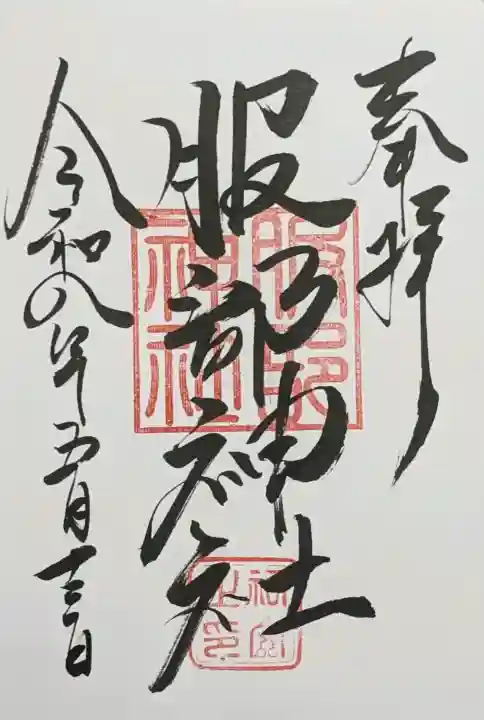 奉拝
服部神社
令和八年五月十三日
服部
神社